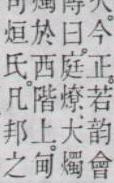 今正。若韵會
曰。庭燎。大燭
燭於西階上。甸
司烜氏。凡邦之